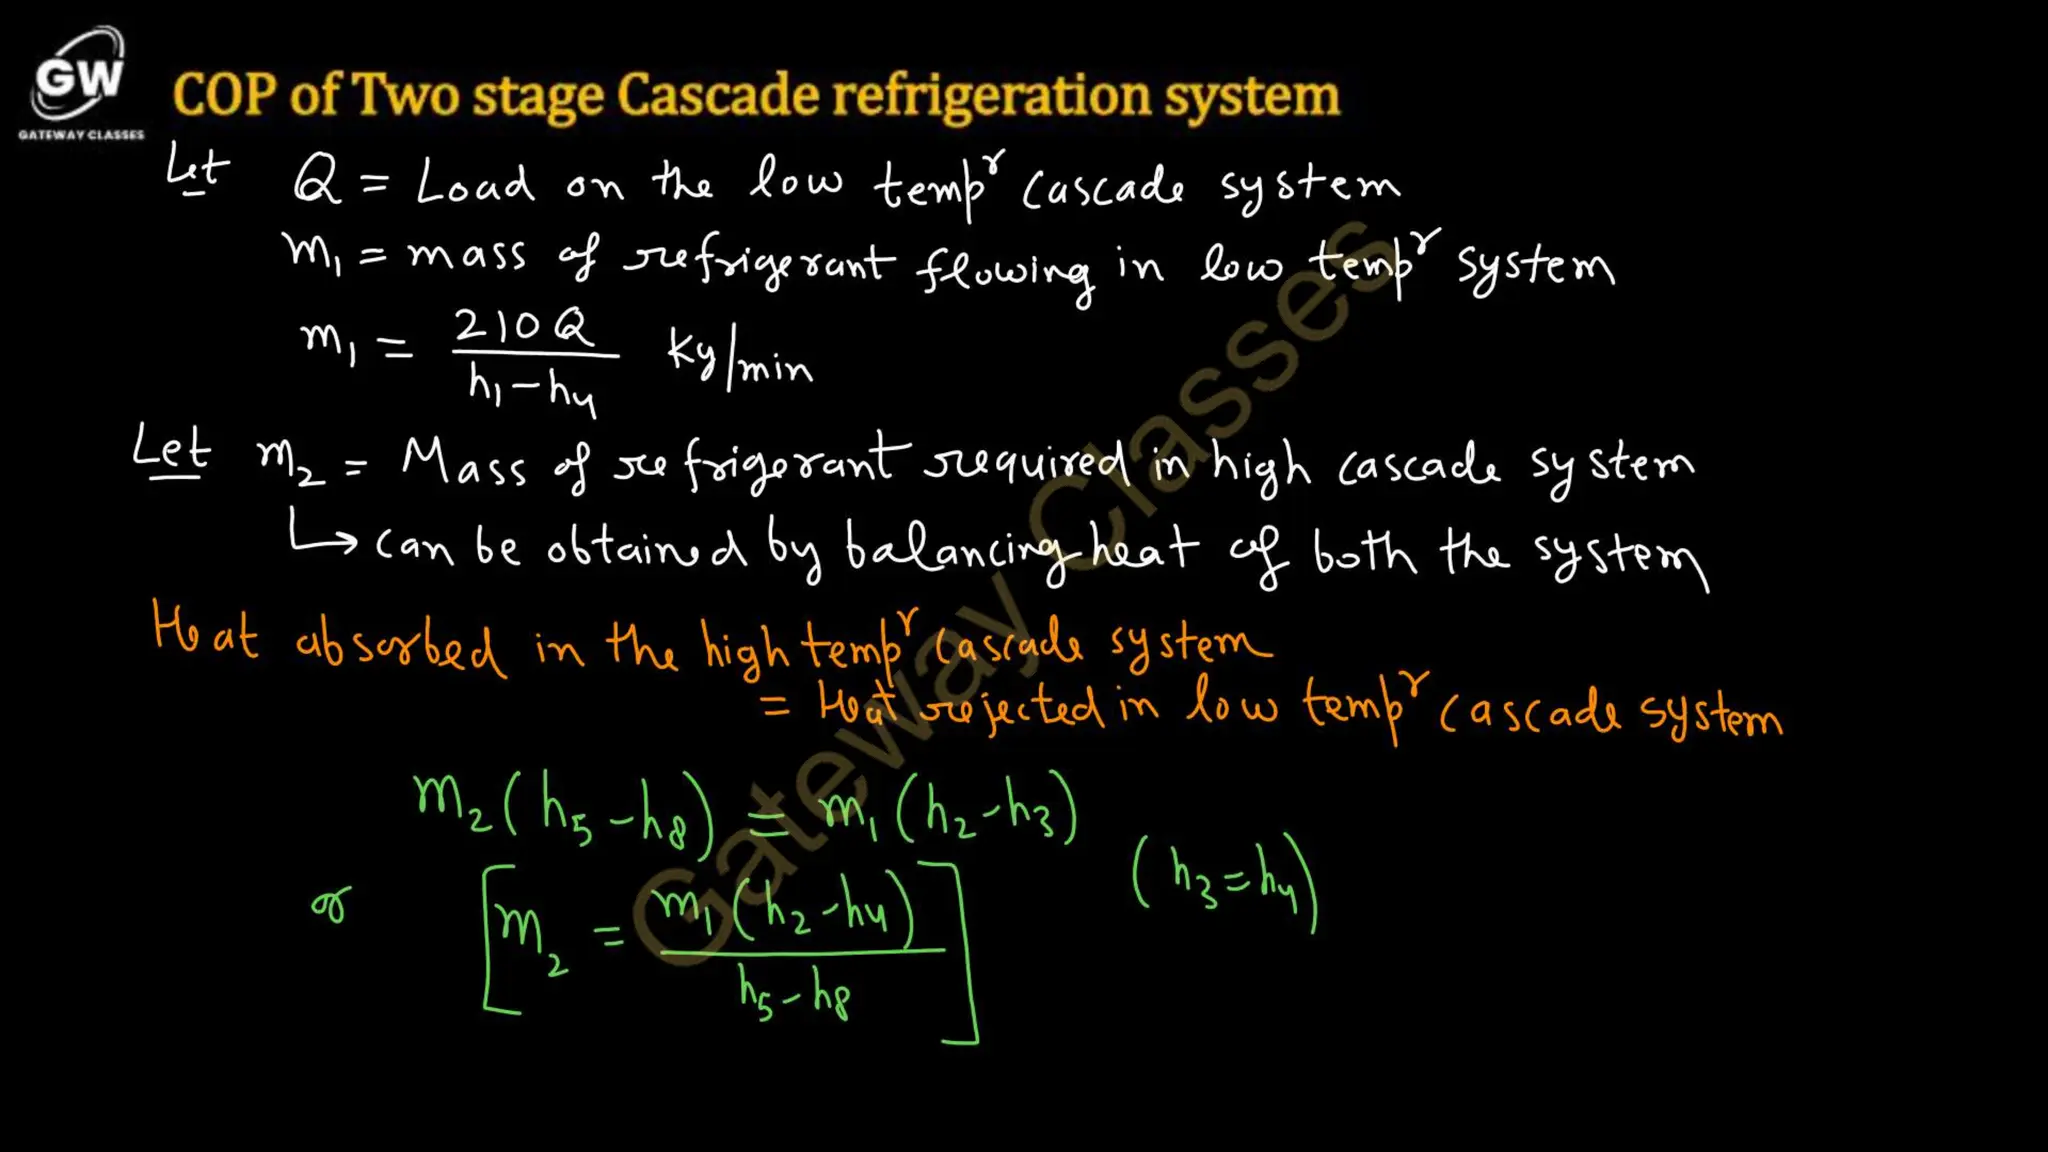 GW
GATEWAY CLASSES
COP of Two stage Cascade refrigeration system
Let Q = Load on the low tempʳ cascade system
m₁ = mass of refrigerant flowing in low tempʳ system
m₁ = 210Q / (h₁-h₄) kg/min
Let m₂ = Mass of refrigerant required in high cascade system
↳ can be obtained by balancing heat of both the system
Heat absorbed in the high tempʳ cascade system
= Heat rejected in low tempʳ cascade system
m₂(h₅-h₈) = m₁(h₂-h₃)
or [m₂ = m₁(h₂-h₄) / (h₅-h₈)] (h₃=h₄)
Gateway Classes